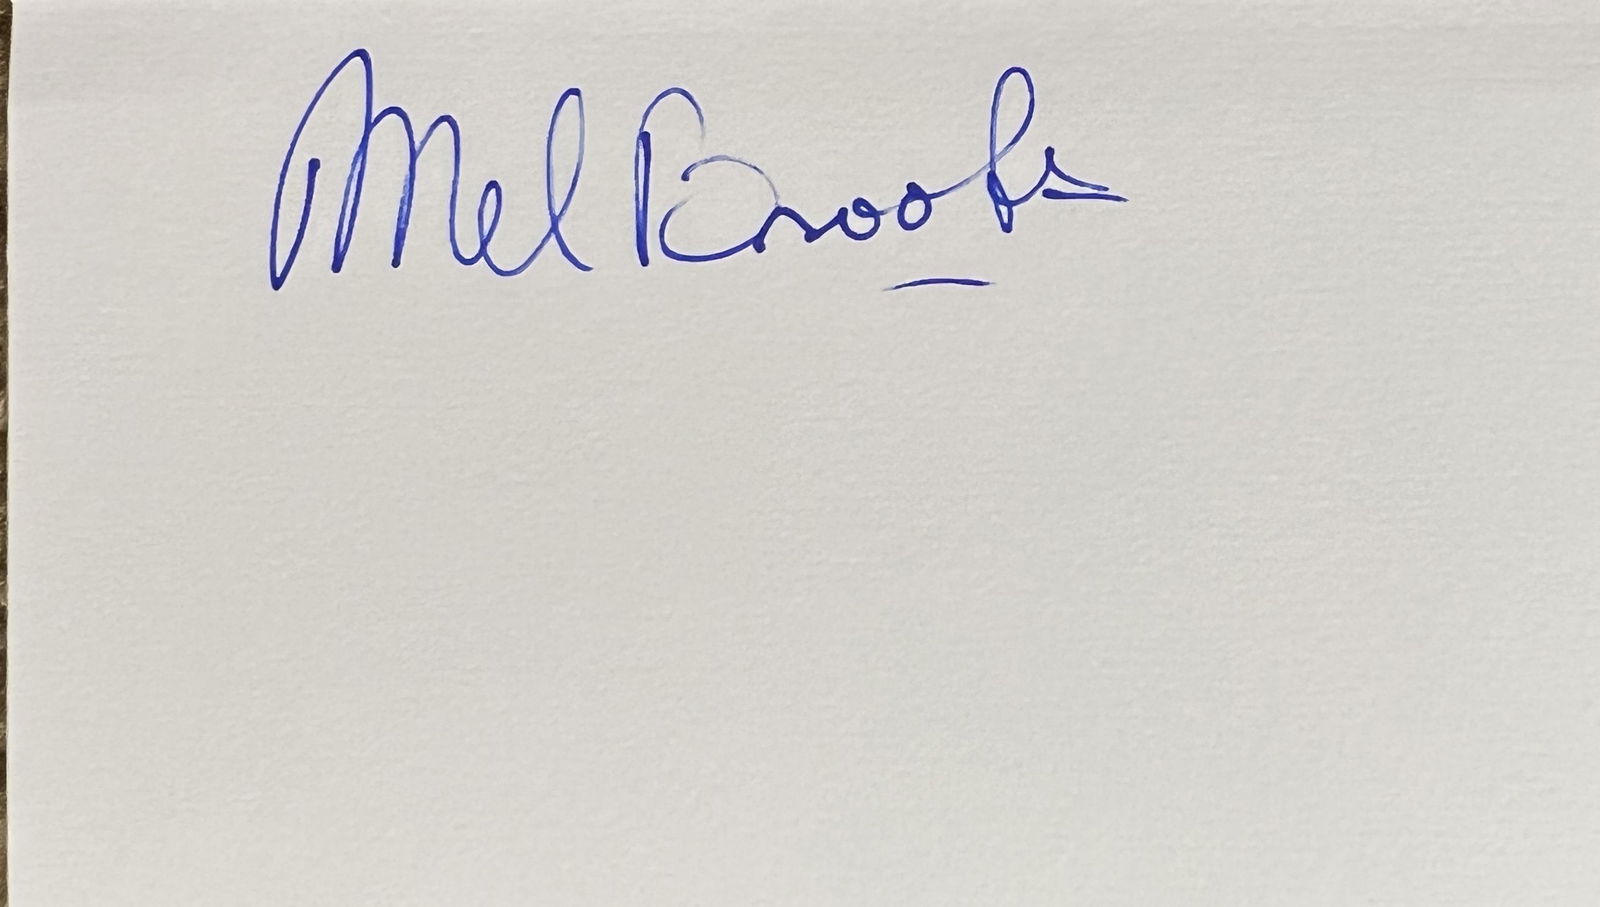 Mel Brooks